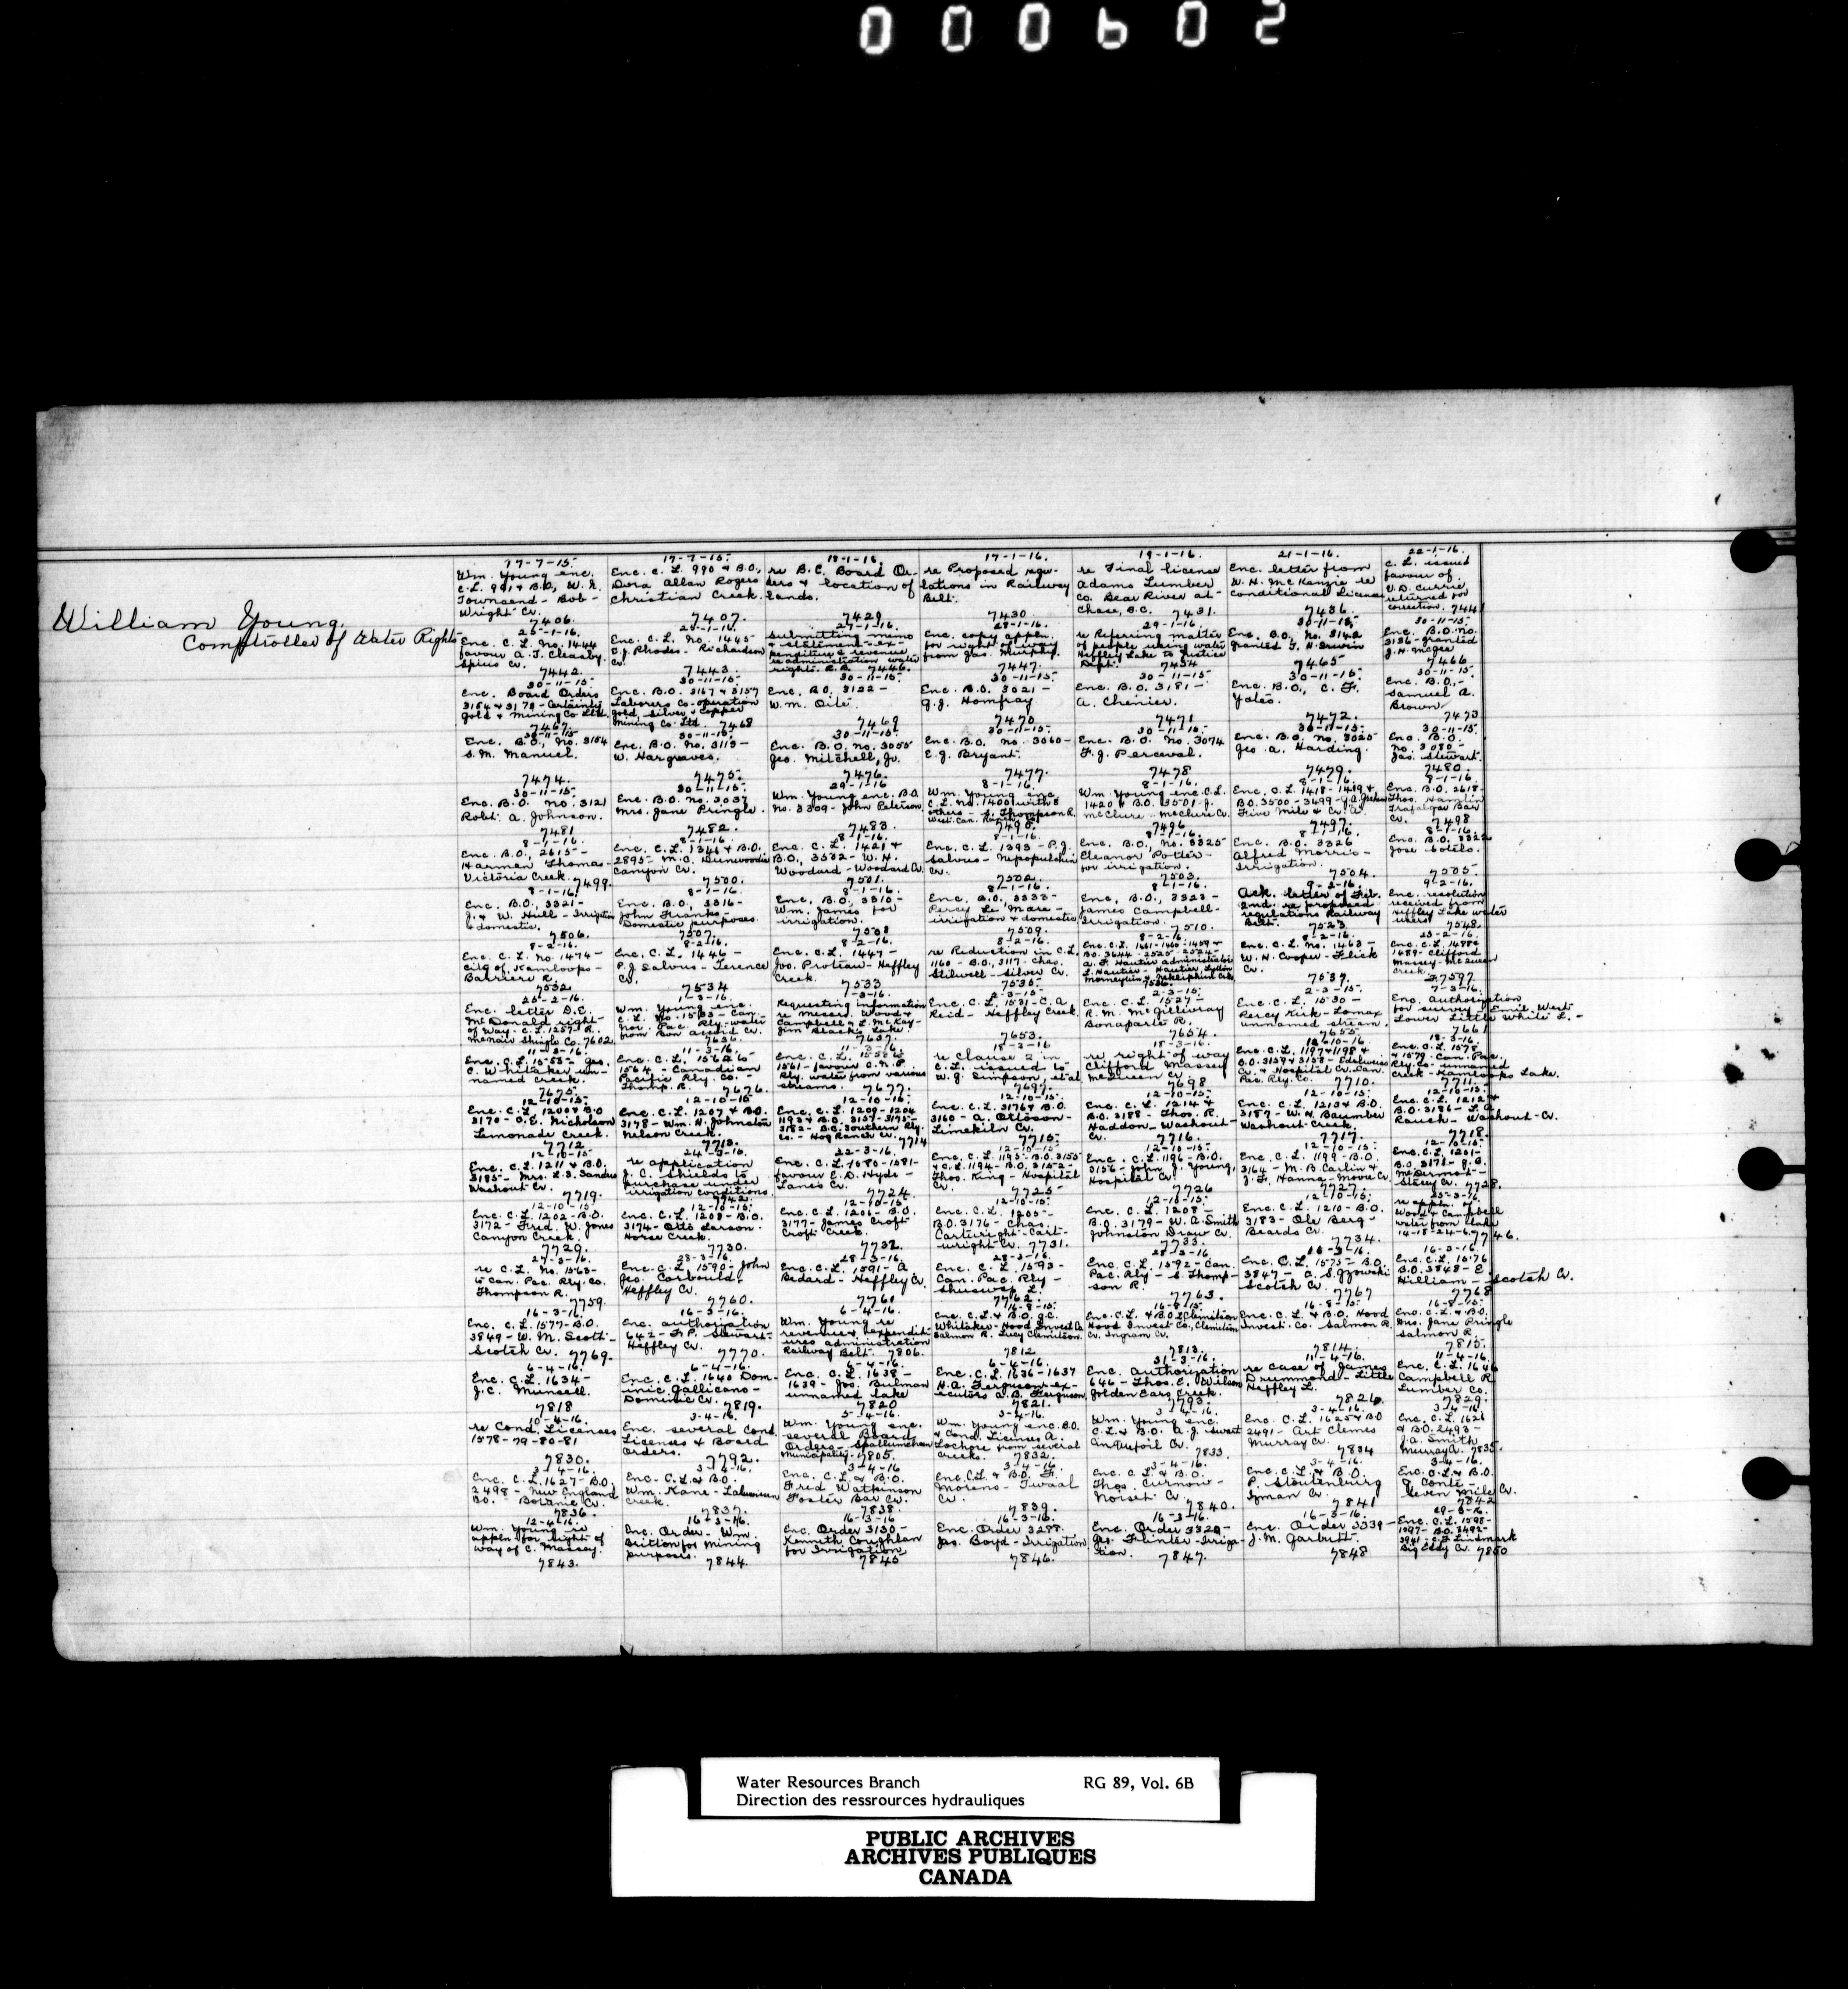 000602
William Young.
Comptroller of Water Rights
17-7-15.
Wm. Young enc.
C.L. 991 & B.O., W. R.
Townsend - Bob-
Wright Cr.
7406.
17-7-15.
Enc. C. L. 990 & B.O.,
Dora Allan Rogers
Christian Creek.
7407.
re B.C. Board Or-
ders & location of
lands.
7429.
17-1-16.
re Proposed regu-
lations in Railway
Belt.
7430.
19-1-16.
re Final license
Adams Lumber
Co. Bear River at
Chase, B.C. 7431.
21-1-16.
Enc. letter from
W. H. McKenzie re
conditional License
7436.
22-1-16.
C. L. issued
favour of
V.D. Currie,
returned for
correction. 7441
Enc. C. L. No. 1444
favour A. J. Cleasby.
Spius Cr.
7442.
Enc. C. L. No. 1445
Richardson
Cr.
7443.
27-1-16.
Submitting memo
& statement ex-
penditure & revenue
re administration water
rights. R.B. 7446.
Enc. copy appen.
for right of way
from Jas. Murphy.
7447.
29-1-16.
re Referring matter
of people using water
Heffley Lake to Justice
Dept. 7454
30-11-15.
Enc. B.O., No. 3142
7465
30-11-15.
Enc. B.O. No.
3136 - granted
J. H. McGee
7466
30-11-15.
Enc. Board Orders
Gold & Mining Co. Ltd.
7467.
30-11-15.
Enc. B.O. 3167 & 3157
Laborers Co-operation
Gold, Silver & Copper
Mining Co. Ltd. 7468
30-11-15.
Enc. B.O. 3122 -
7469
30-11-15.
Enc. B.O. 3021 -
G. J. Homfray
7470
30-11-15.
Enc. B.O. 3181 -
A. Chenier.
7471
30-11-15.
Enc. B.O., C. F.
Yates.
7472.
30-11-15.
Enc. B.O., -
Samuel A.
Brown
7473
30-11-15
Enc. B.O., No. 3154
S. M. Manuel.
7474.
30-11-15.
Enc. B.O. No. 3113 -
W. Hargraves.
7475.
30-11-15.
Enc. B.O. No. 3055
Geo. Mitchell, Jr.
7476.
30-11-15.
Enc. B.O. No. 3060 -
E. J. Bryant.
7477.
30-11-15.
Enc. B.O. No. 3074
F. J. Perceval.
7478
30-11-15.
Enc. B.O. No. 3025
Geo. A. Harding.
7479.
30-11-15.
Enc. B.O.
No. 3080 -
Jas. Stewart.
7480.
30-11-15.
Enc. B.O. No. 3121
Robt. A. Johnson.
7481
30-11-15.
Enc. B.O. No. 3037
Mrs. Jane Pringle.
7482.
29-1-16
Wm. Young enc. B.O.
No. 3309 - John Peterson.
7483.
8-1-16.
Wm. Young enc.
C. L. No. 1400 with 8
others - S. Thompson R.
7495.
8-1-16.
Wm. Young enc. C.L.
1420 & B.O. 3501 - J.
McClure - McClure Cr.
7496
8-1-16.
Enc. C.L. 1418-1419 &
B.O. 3500-3499 -
Five Mile & Cr.
7497.
8-1-16.
Enc. B.O. 2618 -
Thos. Hamlin
Trafalgar Bar
Cr. 7498
8-1-16.
Enc. B.O., 2615 -
Harman Thomas -
Victoria Creek. 7499.
8-1-16.
Enc. C. L. 1346 & B.O.
2895 - M.C. Dunwoodie
Canyon Cr.
7500.
8-1-16.
Enc. C. L. 1421 &
B.O., 3502 - W. H.
Woodard - Woodard Cr.
7501.
8-1-16.
Enc. C.L. 1393 - P.J.
Salvus - Nepopulchin
Cr.
7502.
8-1-16.
Enc. B.O., No. 3325
Eleanor Potter -
for irrigation.
7503.
8-1-16.
Enc. B.O. 3326
Alfred Morris -
Irrigation.
7504.
8-1-16.
Enc. B.O. 3322
Jose Sotelo.
7505.
8-1-16.
Enc. B.O., 3321 -
J. & W. Hull - Irrigation
& domestic.
7506.
8-1-16.
Enc. B.O., 3316 -
John Franks -
Domestic purposes.
7507.
8-1-16.
Enc. B.O., 3310 -
Wm. James for
irrigation.
7508
8-1-16.
Enc. B.O., 3333 -
Percy Le Mare -
irrigation & domestic
7509.
8-1-16.
Enc. B.O., 3323 -
James Campbell -
Irrigation.
7510.
9-2-16.
Ack. letter of Feb.
2nd. re proposed
regulations Railway
Belt. 7523
9-2-16.
Enc. resolution
received from
Heffley Lake water
users. 7548.
8-2-16.
Enc. C. L. No. 1474 -
City of Kamloops -
Barriere R.
7532
8-2-16.
Enc. C. L. 1446 -
P. J. Salvus - Terence
Cr.
7534
8-2-16.
Enc. C.L. 1447 -
Jos. Proteau - Heffley
Creek.
7533
8-2-16.
re Reduction in C.L.
1160 - B.O., 3117 - Chas.
Stilwell - Silver Cr.
7535.
8-2-16.
7536.
8-2-16.
Enc. C. L. No. 1463 -
W. H. Cooper - Flick
Cr.
7537.
25-2-16.
1489 - Clifford
Massey - McQueen
Creek. 7597.
25-2-16.
Enc. letter D.C.
McDonald right
of way. C.L. 1257 - R.
McNair Shingle Co. 7602.
1-3-16.
Wm. Young enc.
C. L. No. 1533 - Can.
Nor. Pac. Rly. water
from Bon Accord Cr.
7636.
1-3-16.
Requesting information
re Messrs. Wood &
Campbell & L. McKay -
Jim Black's Lake.
7637.
2-3-15.
Enc. C. L. 1531 - C. A.
Reid - Heffley Creek.
7653.
2-3-15.
Enc. C. L. 1527 -
R. M. McGillivray
Bonaparte R.
7654.
2-3-15.
Enc. C. L. 1530 -
Percy Kirk - Lomax
unnamed stream.
7655.
7-3-16.
Enc. authorization
for survey - Emil West -
Lower Little White L. -
7661
11-3-16.
Enc. C.L. 1553 - Geo.
C. Whitaker un-
named creek.
7675.
11-3-16.
Enc. C. L. 1562 to
1564 - Canadian
Pacific Rly. Co. -
Thomp. R. 7676.
11-3-16.
Enc. C. L. 1558 to
1561 - favour C.N.P.
Rly. water from various
streams. 7677.
18-3-16
re Clause 2 in
C. L. issued to
W. G. Simpson, et al
7697.
18-3-16.
re right of way
Clifford Massey
McQueen Cr.
7698
12-10-15.
Enc. C.L. 1197 & 1198 &
B.O. 3159 & 3158 - Edelweiss
Cr. & Hospital Cr. Can.
Pac. Rly. Co. 7710.
18-3-16.
Enc. C. L. 1578
& 1579 - Can. Pac.
Rly. Co. unnamed
Creek - Kamloops Lake.
7711.
12-10-15.
Enc. C.L. 1200 & B.O.
3170 - O. E. Nicholson
Lemonade Creek.
7712
12-10-15
Enc. C.L. 1207 & B.O.
3178 - Wm. H. Johnston
Nelson Creek.
7713.
12-10-15.
Enc. C.L. 1209-1204
1193 & B.O. 3181-3175-
3182 - B.C. Southern Rly.
Co. - Hog Ranch Cr. 7714
12-10-15.
Enc. C.L. 3176 & B.O.
3160 - A. Ottoson -
Limekiln Cr.
7715.
12-10-15.
Enc. C.L. 1214 &
B.O. 3188 - Thos. R.
Haddon - Washout
Cr. 7716.
12-10-15.
Enc. C.L. 1213 & B.O.
3187 - W. H. Baumber
Washout Creek.
7717.
12-10-15.
Enc. C.L. 1212 &
B.O. 3186 - L. A.
Rauch - Washout Cr.
7718.
12-10-15
Enc. C.L. 1211 & B.O.
3185 - Mrs. L. S. Sandus
Washout Cr.
7719.
24-3-16.
re application
J. C. Shields to
purchase under
irrigation conditions.
7742.
22-3-16.
Enc. C.L. 1580-1581 -
favour E. D. Hyde -
Lanes Cr.
7724.
12-10-15
Enc. C. L. 1195 - B.O. 3155
& C.L. 1194 - B.O. 3152 -
Thos. King - Hospital
Cr. 7725
12-10-15.
Enc. C. L. 1196 - B.O.
3156 - John J. Young,
Hospital Cr.
7726
12-10-15.
Enc. C. L. 1199 - B.O.
3164 - M. B. Carlin &
J. F. Hanna - Moose Cr.
7727.
12-10-15.
Enc. C. L. 1201 -
B.O. 3171 - J. B.
McDermot -
Stacey Cr. 7728.
12-10-15
Enc. C. L. 1202 - B.O.
3172 - Fred. W. Jones
Canyon Creek.
7729.
12-10-15.
Enc. C. L. 1203 - B.O.
3174 - Otto Larson -
Horse Creek.
7730.
12-10-15
Enc. C.L. 1206 - B.O.
3177 - James Croft
Croft Creek.
7732.
12-10-15.
Enc. C. L. 1205 -
B.O. 3176 - Chas.
Cartwright - Cart-
wright Cr. 7731.
12-10-15.
Enc. C. L. 1208 -
B.O. 3179 - W. A. Smith
Johnston Draw Cr.
7733.
12-10-15.
Enc. C. L. 1210 - B.O.
3183 - Ole Berg -
Beards Cr.
7734.
25-3-16.
re appln. of
Wood & Campbell
water from Lake
14-18-24-6. 7746.
27-3-16.
re C. L. No. 1563 -
to Can. Pac. Rly. Co.
Thompson R.
7759.
28-3-16.
Enc. C. L. 1590 - John
Geo. Corbould -
Heffley Cr.
7760.
28-3-16
Enc. C. L. 1591 - A
Bedard - Heffley Cr.
7761
28-3-16.
Enc. C. L. 1593 -
Can. Pac. Rly -
Shuswap L.
7762.
28-3-16
Enc. C. L. 1592 - Can.
Pac. Rly - S. Thomp-
son R.
7763.
16-3-16.
Enc. C. L. 1575 - B.O.
3847 - C. S. Gzowski
Scotch Cr.
7767
16-3-16.
Enc. C. L. 1576
B.O. 3848 - E.
William - Scotch Cr.
7768
16-3-16
Enc. C. L. 1577 - B.O.
3849 - W. M. Scott -
Scotch Cr. 7769.
16-3-16.
Enc. authorization
642 - F. P. Stewart -
Heffley Cr.
7770.
6-4-16.
Wm. Young re
revenue & expendit-
ures administration
Railway Belt. 7806.
16-8-15.
Enc. C.L. & B.O. J.C.
Whitaker - Hood Invest Co
Salmon R. Lucy Clemitson.
7812
16-8-15
Enc. C.L. & B.O. L Clemitson
Hood Invest Co., Clemitson
Cr. Ingram Cr.
7813.
16-8-15.
Enc. C. L. & B.O. Hood
Invest. Co. Salmon R.
7814.
16-8-15.
Enc. C.L. & B.O.
Mrs. Jane Pringle
Salmon R.
7815.
6-4-16.
Enc. C. L. 1634 -
J. C. Munsell.
7818
6-4-16.
Enc. C. L. 1640 Dom-
inic Gallicano -
Dominic Cr.
7819.
6-4-16.
Enc. C. L. 1638 -
1639 - Jos. Bulman
unnamed lake
7820
6-4-16.
Enc. C. L. 1636-1637
H.A. Ferguson ex-
ecutors A. B. Ferguson.
7821.
31-3-16.
Enc. authorization
646 - Thos. E. Wilson
Golden Ears Creek.
7793.
11-4-16.
re case of James
Drummond - Little
Heffley L.
7826.
11-4-16.
Enc. C. L. 1646
Campbell R.
Lumber Co.
7829.
10-4-16.
re Cond. Licenses
1578-79-80-81
7830.
3-4-16.
Enc. several Cond.
Licenses & Board
Orders.
7792.
5-4-16.
Wm. Young enc.
several Board
Orders - Spallumcheen
Municipality. 7805.
3-4-16.
Wm. Young enc. B.O.
& Cond. Licenses A.
Lochore from several
creeks. 7832.
3-4-16.
Wm. Young enc.
C.L. & B.O. A. J. Swart
Cinquefoil Cr.
7833
3-4-16.
Enc. C. L. 1625 & B.O
2491 - Art Clemes
Murray Cr.
7834
3-4-16.
Enc. C. L. 1626
& B.O. 2493 -
J. A. Smith
Murray Cr. 7835.
3-4-16.
Enc. C. L. 1627 - B.O.
2498 - New England
Co. - Botanie Cr.
7836.
3-4-16.
Enc. C. L. & B.O.
Wm. Kane -
Creek.
7837.
3-4-16
Enc. C. L. & B.O.
Fred Watkinson
Foster Bar Cr.
7838.
3-4-16
Enc. C.L. & B.O. F.
Moreno - Twaal
Cr.
7839.
3-4-16.
Enc. C. L. & B.O.
Thos. Curnow -
Cr.
7840.
3-4-16.
Enc. C. L. & B.O.
P. Stoutenburg
Izman Cr.
7841
3-4-16.
Enc. C. L. & B.O.
G. Conte -
Seven Mile Cr.
7842
12-4-16.
Wm. Young re
appln for right of
way of C. Massey.
7843.
16-3-16.
Enc. Order - Wm.
Britton for mining
purposes. 7844.
16-3-16
Enc. Order 3130 -
Kenneth Coughlan
for Irrigation
7845
16-3-16.
Enc. Order 3288.
Jas. Boyd - Irrigation
7846.
16-3-16.
Enc. Order 3320 -
Geo. Flinter - Irriga-
tion. 7847.
16-3-16.
Enc. Order 3339 -
J. M. Garbutt.
7848
29-3-16
Enc. C. L. 1598 -
1097 - B.O. 3492 -
3941 - C. F. Lindmark
Big Eddy Cr. 7850
Water Resources Branch RG 89, Vol. 6B
Direction des ressrources hydrauliques
PUBLIC ARCHIVES
ARCHIVES PUBLIQUES
CANADA